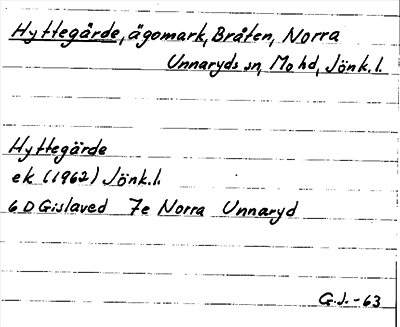 Hyttegärde, ägomark, Bråten, Norra
Unnaryds sn, Mo hd, Jönk.l.
Hyttegärde
ek (1962) Jönk.l.
6 D Gislaved 7e Norra Unnaryd
G.J.-63